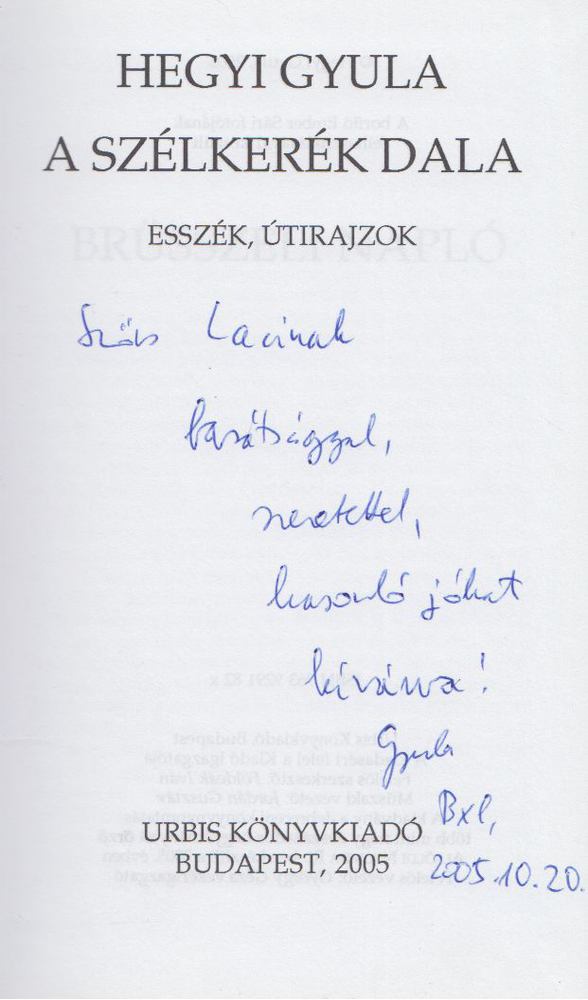 HEGYI GYULA
A SZÉLKERÉK DALA
ESSZÉK, ÚTIRAJZOK
Szűts Lacinak
barátsággal,
szeretettel,
hasonló jókat
kívánva!
Gyula
Bxl,
URBIS KÖNYVKIADÓ
BUDAPEST, 2005
2005.10.20.